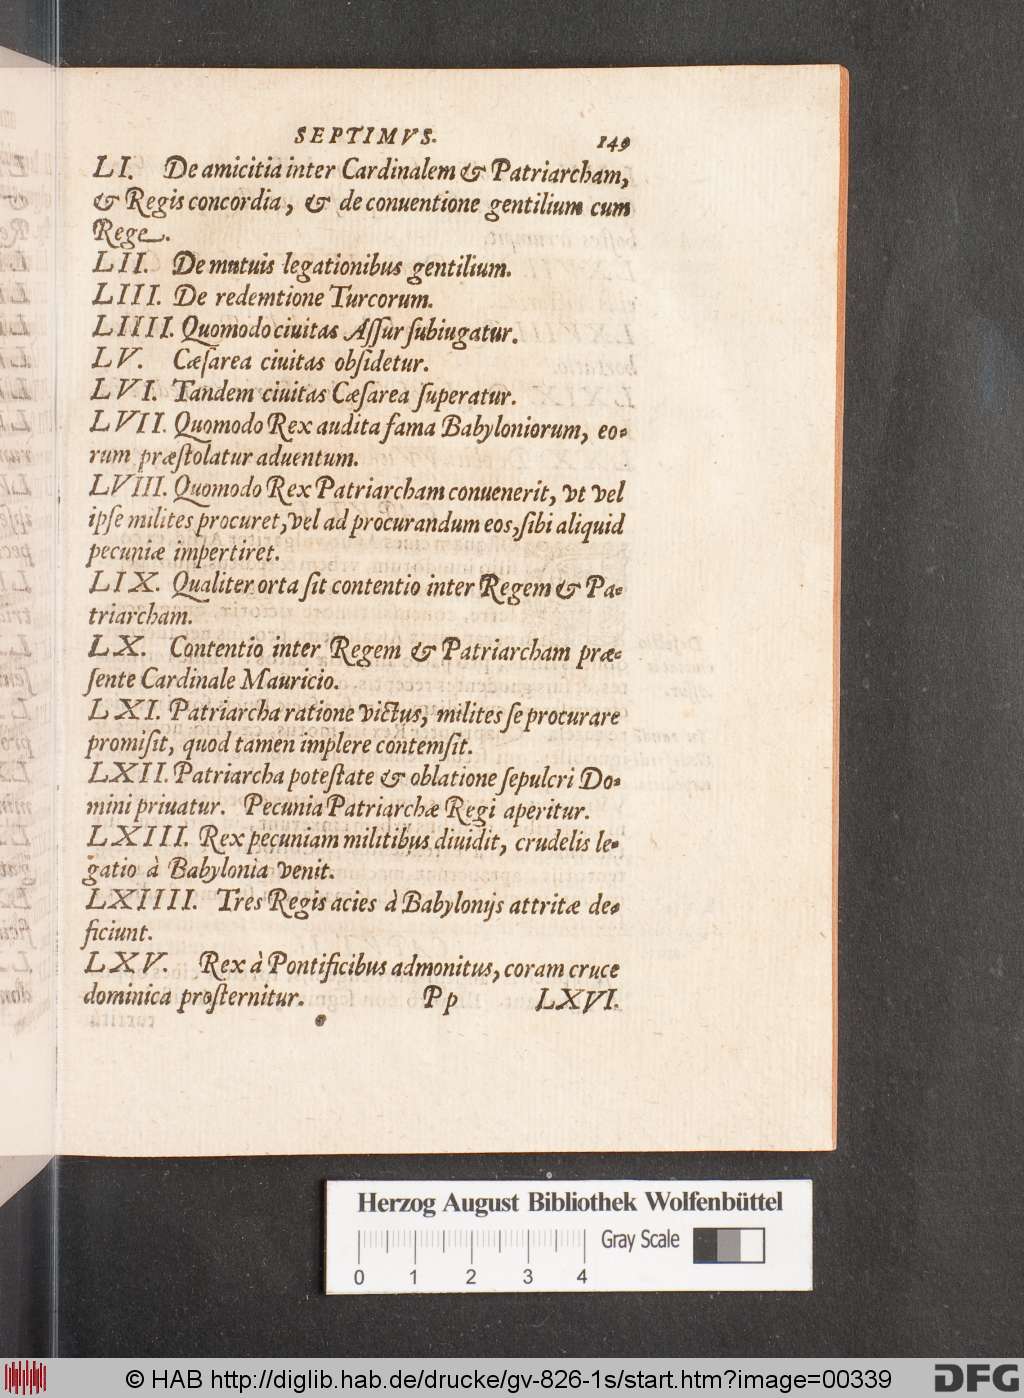 SEPTIMVS. 149
LI. De amicitia inter Cardinalem & Patriarcham,
& Regis concordia, & de conuentione gentilium cum
Rege.
LII. De mutuis legationibus gentilium.
LIII. De redemtione Turcorum.
LIIII. Quomodo ciuitas Assur subiugatur.
LV. Cæsarea ciuitas obsidetur.
LVI. Tandem ciuitas Cæsarea superatur.
LVII. Quomodo Rex audita fama Babyloniorum, eo-
rum præstolatur aduentum.
LVIII. Quomodo Rex Patriarcham conuenerit, vt vel
ipse milites procuret, vel ad procurandum eos, sibi aliquid
pecuniæ impertiret.
LIX. Qualiter orta sit contentio inter Regem & Pa-
triarcham.
LX. Contentio inter Regem & Patriarcham præ-
sente Cardinale Mauricio.
LXI. Patriarcha ratione victus, milites se procurare
promisit, quod tamen implere contemsit.
LXII. Patriarcha potestate & oblatione sepulcri Do-
mini priuatur. Pecunia Patriarchæ Regi aperitur.
LXIII. Rex pecuniam militibus diuidit, crudelis le-
gatio à Babylonia venit.
LXIIII. Tres Regis acies à Babylonijs attritæ de-
ficiunt.
LXV. Rex à Pontificibus admonitus, coram cruce
dominica prosternitur. Pp LXVI.
Herzog August Bibliothek Wolfenbüttel
Gray Scale
0 1 2 3 4
© HAB http://diglib.hab.de/drucke/gv-826-1s/start.htm?image=00339
DFG